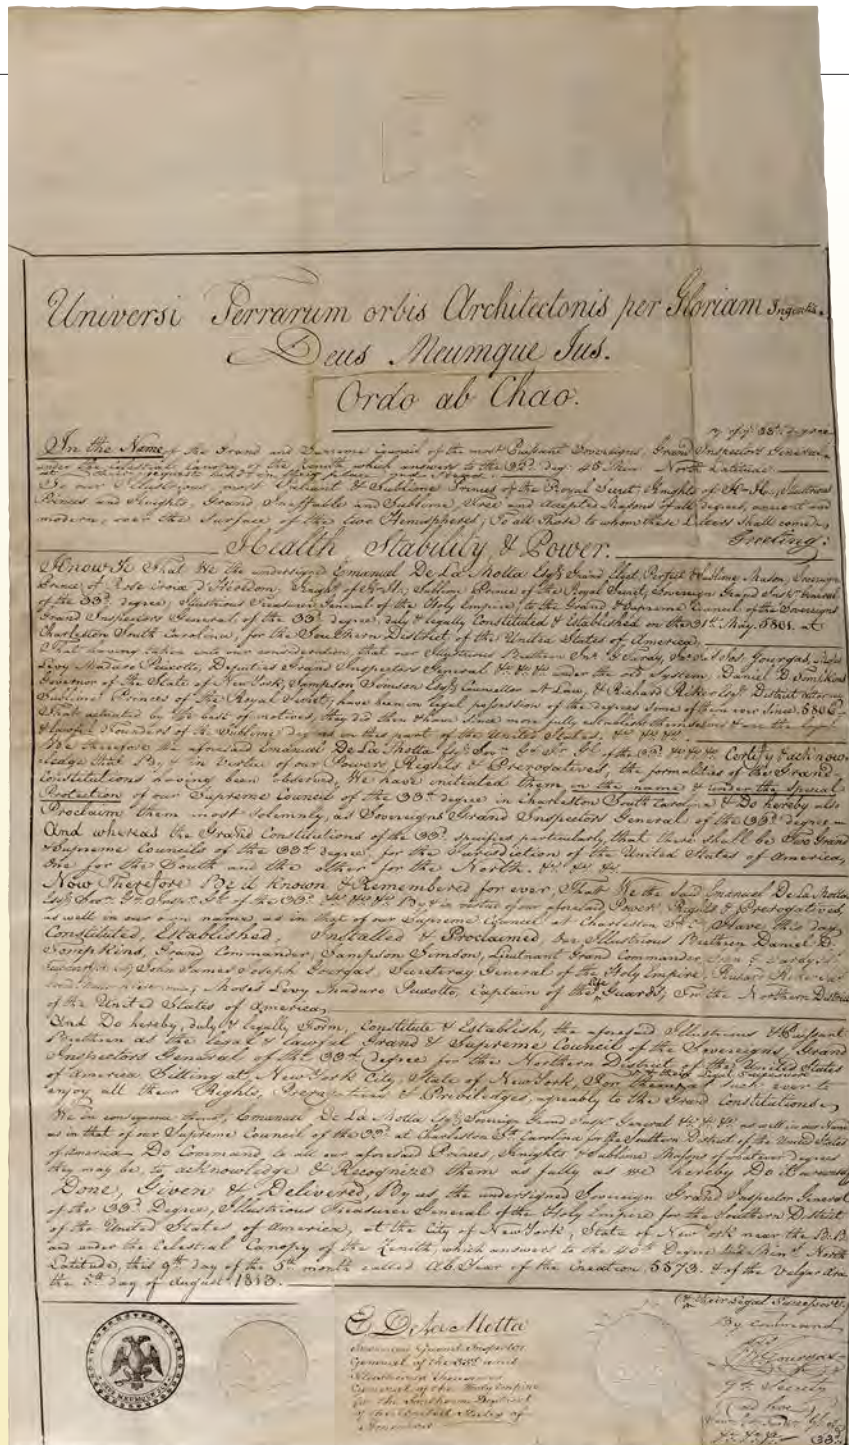 Universi Terrarum orbis Architectonis per Gloriam Ingentis.
Deus Meumque Jus.
Ordo ab Chao.
of ye 33d. degree
In the Name of the Grand and Supreme Council of the most Puissant Sovereigns, Grand Inspectors General,
under the celestial Canopy of the Zenith which answers to the 32d. deg: 45 Min: North Latitude.
To our Illustrious, most Valiant & Sublime Princes of the Royal Secret, Knights of K-H, Illustrious
Princes and Knights, Grand Ineffable and Sublime, Free and Accepted Masons of all degrees, ancient and
modern, over the Surface of the two Hemispheres; To all those to whom these Letters shall come,
Health Stability & Power. Greeting:
Know Ye That We the undersigned Emanuel De La Motta Esqr. Grand Elect, Perfect & Sublime Mason, Sovereign
Prince of Rose Croix d'Heredom, Knight of K-H; Sublime Prince of the Royal Secret, Sovereign Grand Inspr. General
of the 33d. degree, Illustrious Treasurer General of the Holy Empire, to the Grand & Supreme Council of the Sovereigns
Grand Inspectors General of the 33d. degree, duly & legally Constituted & Established on the 31st. May 5801. at
Charleston South Carolina, for the Southern District of the United States of America.
That having taken into our consideration, that our Illustrious Brethren Jno. G. Tardy, Jno. Jas. Jos. Gourgas, Moses
Levy Maduro Peixotto, Deputies Grand Inspectors General &c. &c. &c. under the old System, Daniel D. Tompkins
Governor of the State of New York, Sampson Simson Esqr. Counsellor at Law, & Richard Riker Esqr. District Attorney
Sublime Princes of the Royal Secret, have been in legal possession of the degrees some of them ever since 5806
That actuated by the best of motives, they did then & have since more fully establish themselves & are the legal
& lawful Founders of the Sublime degrees in this part of the United States. &c. &c. &c.
We therefore the aforesaid Emanuel De La Motta Esqr. Sovn. Gd. Inr. Gl. of the 33d. &c. &c. &c. Certify & acknow-
ledge that By & in virtue of our Powers, Rights & Prerogatives, the formalities of the Grand
Constitutions having been observed, We have initiated them, in the name & under the special
Protection of our Supreme Council of the 33d. degree in Charleston South Carolina & Do hereby also
Proclaim them most solemnly, as Sovereigns Grand Inspectors General of the 33d. degree
And whereas the Grand Constitutions of the 33d. specifies particularly, that there shall be Two Grand
& Supreme Councils of the 33d. degree, for the Jurisdiction of the United States of America,
One for the South and the other for the North. &c. &c. &c.
Now Therefore Be it Known & Remembered for ever, That We the said Emanuel De La Motta
Esqr. Sovn. Gd. Inspr. Gl. of the 33d. &c. &c. &c. By & in virtue of our aforesaid Powers, Rights & Prerogatives,
as well in our own name, as in that of our Supreme Council at Charleston So. Ca. Have this day
Constituted, Established, Installed & Proclaimed, Our Illustrious Brethren Daniel D.
Tompkins, Grand Commander, Sampson Simson, Lieutnant Grand Commander, John G. Tardy
John James Joseph Gourgas, Secretary General of the Holy Empire, Richard Riker
Moses Levy Maduro Peixotto, Captain of the Life Guards, For the Northern District
of the United States of America,
And Do hereby, duly & legally Form, Constitute & Establish, the aforesaid Illustrious & Puissant
Brethren as the legal & lawful Grand & Supreme Council of the Sovereigns, Grand
Inspectors General of the 33d. degree for the Northern District of the United States
of America Sitting at New York City, State of New York, For them, & to their legal Successors as such ever to
enjoy all their Rights, Prerogatives & Priviledges, agreably to the Grand Constitutions,
We in consequence thereof, Emanuel De La Motta Esqr. Sovereign Grand Inspr. General &c. &c. &c. as well in our Name
as in that of our Supreme Council of the 33d. at Charleston So. Carolina for the Southern District of the United States
of America Do Command, to all our aforesaid Princes, Knights & Sublime Masons of whatever degrees
they may be, to acknowledge & Recognize them as fully as we hereby Do it ourselves
Done, Given & Delivered, By us, the undersigned Sovereign Grand Inspector General
of the 33d. Degree, Illustrious Treasurer General of the Holy Empire for the Southern District
of the United States of America, at the City of New York, State of New York near the B.B.
and under the Celestial Canopy of the Zenith, which answers to the 40th Degree Minr. North
Latitude, this 9th day of the 5th month called Ab. Year of the Creation 5573. & of the Vulgar Æra
the 5th day of August 1813.
DEUS MEUMQUE JUS
E De La Motta
Sovereign Grand Inspector
General of the 33d and
Illustrious Treasurer
General of the Holy Empire
for the Southern District
of the United States of
America
(& their legal Successors)
By command
Gourgas
Gl. Secrety
33d